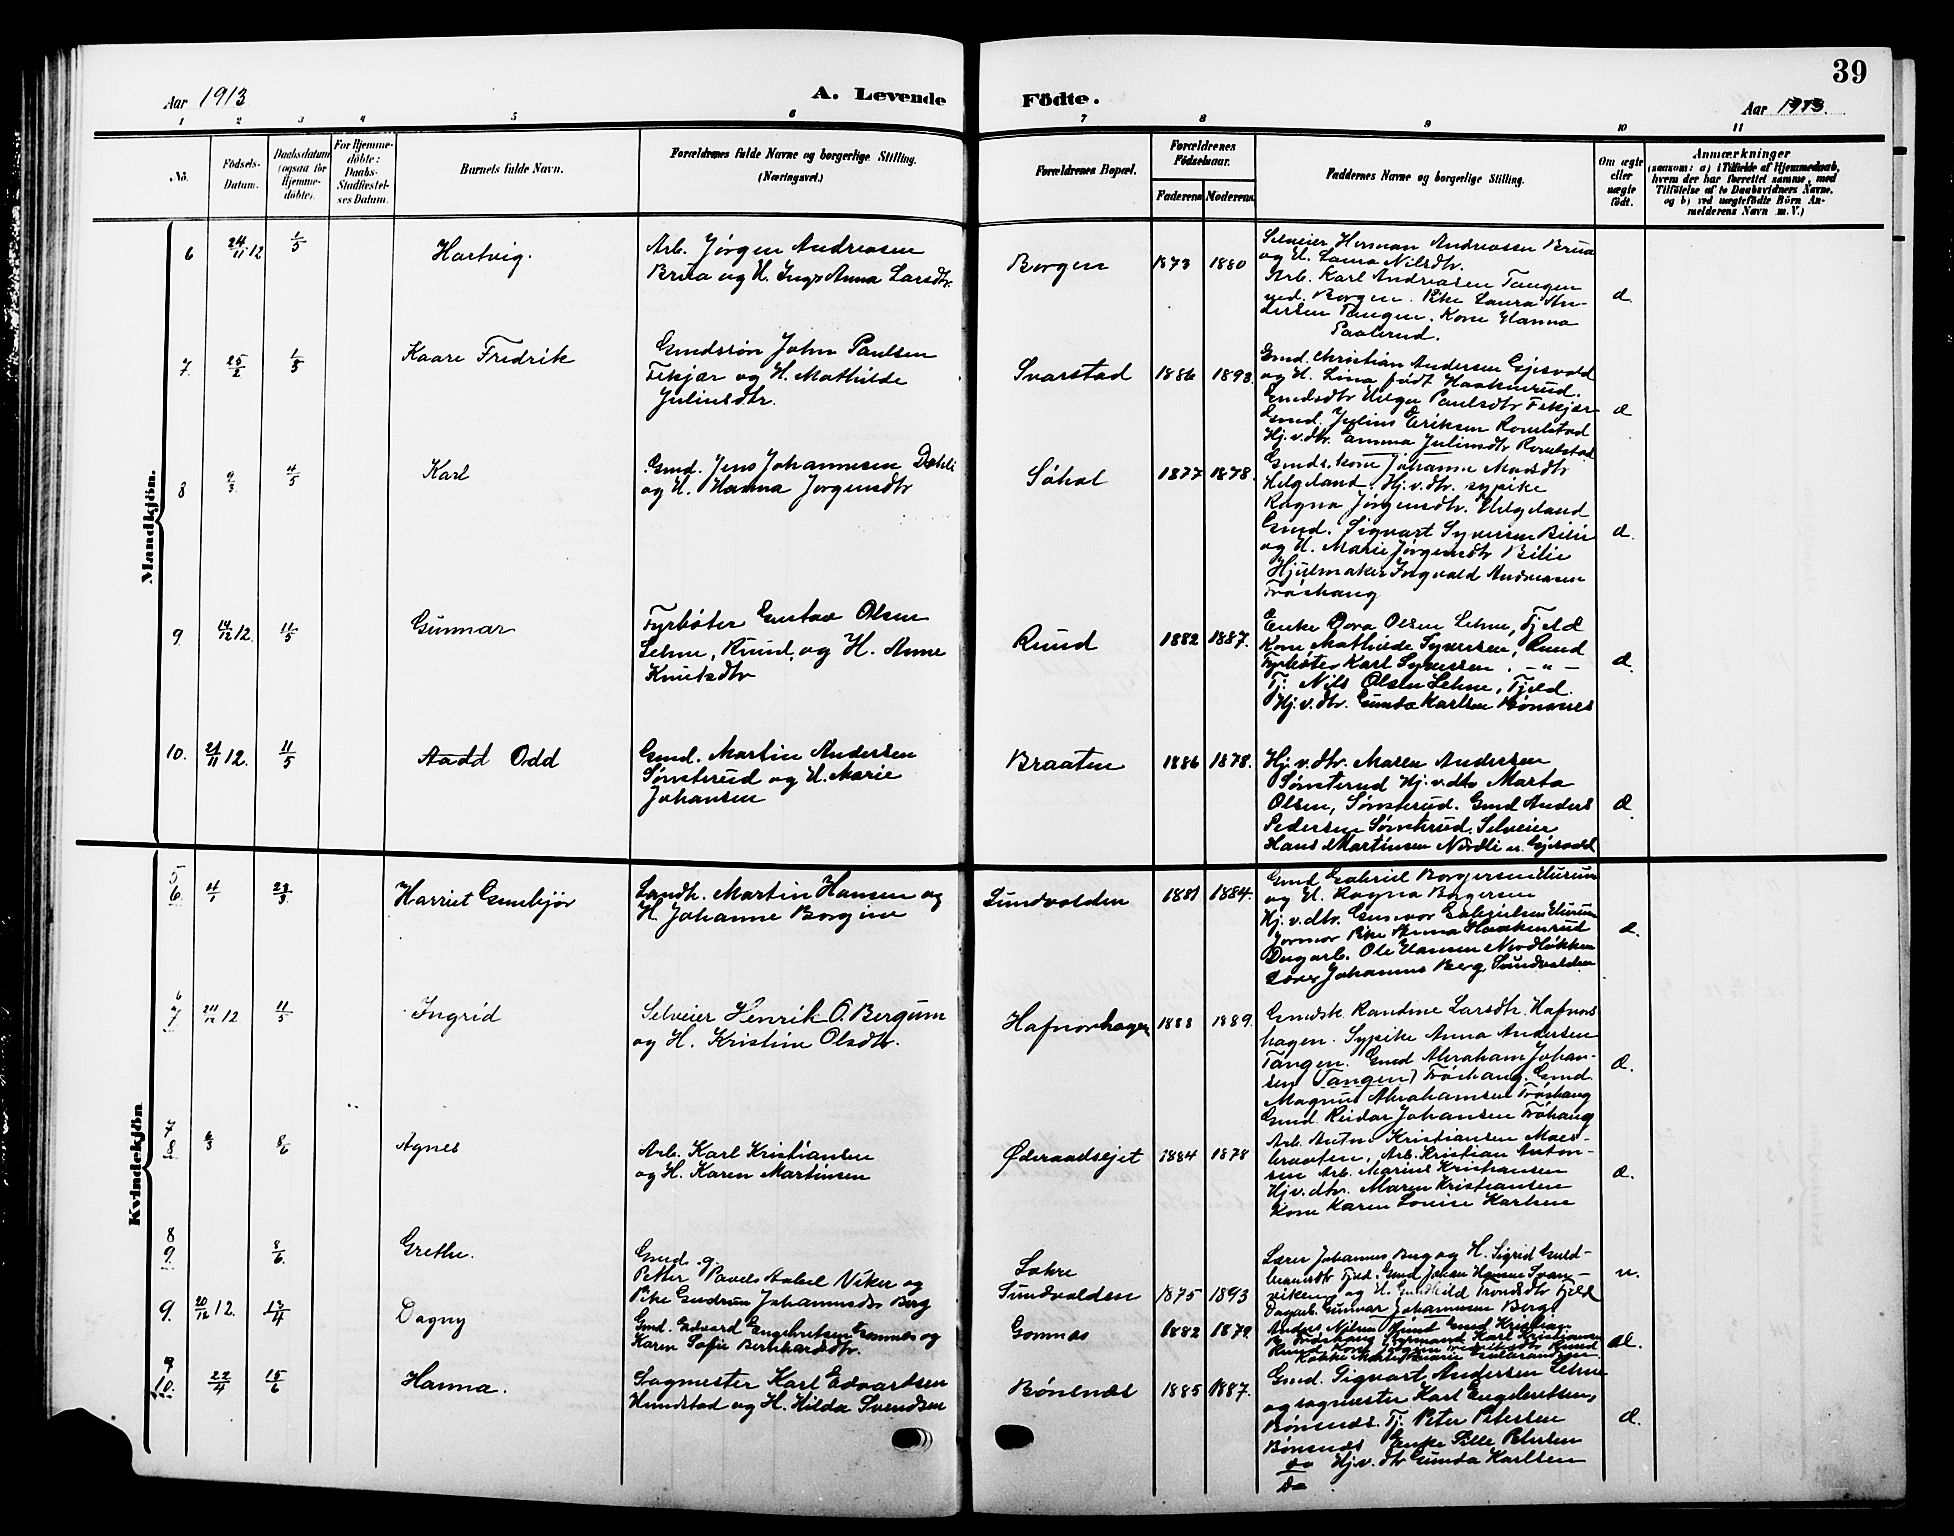 39
Aar 1913
A. Levende Födte.
Aar 1913.
1 2 3 4 5 6 7 8 9 10 11
No.
Födsels-Datum.
Daabsdatum (ogsaa for Hjemme-döbte).
For Hjemme-döbte: Daabs-Stadfæstel-ses Datum.
Barnets fulde Navn.
Forældrenes fulde Navne og borgerlige Stilling. (Næringsvei.)
Forældrenes Bopæl.
Forældrenes Födselsaar.
Faderens Moderens
Faddernes Navne og borgerlige Stilling.
Om ægte eller uægte födt.
Anmærkninger
(saasom: a) i Tilfælde af Hjemmedaab,
hvem der har forrettet samme, med
Tilföielse af to Daabsvidners Navne.
og b) ved uægtefödte Börn An-
melderens Navn m. V.)
Mandkjön.
6 24/11 12 1/5 Hartvig.
Arb. Jørgen Andreasen
Brua og H. Inga Anna Larsdtr.
Borgen 1873 1880
Selveier Herman Andreassen Brua
og H. Laura Nilsdtr.
Arb. Karl Andreasen Tangen
ved. Borgen. Pike Laura An-
dersen Tangen. Kone Hanna
Paalerud.
æ.
7 25/2 1/5 Kaare Fredrik
Gmdssøn John Paulsen
Fekjær og H. Mathilde
Juliusdtr.
Svarstad 1886 1893.
Gmd. Christian Andersen Gjesvold
og H. Lina født Haakenrud.
Gmdsdtr Helga Paulsdtr Fekjær
Gmd. Julius Eriksen
Hj.v.dtr. Emma Juliusdtr
æ
8 9/3 4/5 Karl
Gmd. Jens Johannesen Dæhli
og H. Hanna Jørgensdtr
Søhol 1877 1878.
Gmds. kone Johanne
Helgeland. Hj.v.dtr. sypike
Ragna Jørgensdtr. Helgeland
Gmd. Sigvart Syversen Bilie
og H. Marie Jørgensdtr Bilie
Hjulmaker Ingvald Andreasen
Frøshaug
æ.
9 14/12 12. 11/5 Gunnar
Fyrbøter Gustav Olsen
Lehne, Ruud, og H. Anne
Knutsdtr
Ruud 1882 1887.
Enke Dora Olsen Lehne, Fjeld
Kone Mathilde Syversen, Ruud
Fyrbøter Karl Syversen. -"-
Tj. Nils Olsen Lehne, Fjeld.
Hj.v.dtr. Gunda Karlsen Bønsnes
æ.
10. 21/11 12. 11/5 Aadd Odd
Gmd. Martin Andersen
Sønsterud og H. Marie
Johansen
Braaten 1886 1878.
Hj.v.dtr. Maren Andersen
Sønsterud Hj.v.dtr Marta
Olsen, Sønsterud. Gmd Anders
Pedersen Sønsterud. Selveier
Hans Martinsen Nordli u. Gjesvold
æ.
Kvindekjön
5
6 4/1 23/3 Harriet Gunbjør
Landh. Martin Hansen og
H. Johanne Borgine
Sundvolden 1881 1884.
Gmd Gabriel Borgersen Elurum
og H. Ragna Borgersen
Hj.v.dtr. Gunvor Gabrielsen Elurum
Pike Anna Haakenrud
Dagarb. Ole Hansen Nordløkken
Lærer Johannes Berg Sundvolden
æ.
6
7 12 11/5 Ingrid
Selveier Henrik O. Bergum
og H. Kristine Olsdtr.
Hafnorhagen 1888 1889.
Gmdsk. Randine Larsdtr. Hafnors
hagen. Sypike Anna Andersen
Tangen. Gmd Abraham Johan-
sen (Tangen) Frøshaug. Gmd.
Magnus Abrahamsen Frøshaug
Gmd. Reidar Johansen Frøhaug
æ.
7
8 6/3 8/6 Agnes
Arb. Karl Kristiansen
og H. Karen Martinsen
Øderaadsejet 1884 1878
Arb. Anton Kristiansen Moes-
braaten, Arb. Kristian Anton-
sen Arb. Marius Kristiansen
Hj.v.dtr. Maren Kristiansen
Kone Karen Louise Karlsen
æ.
8
9. 8/6 Grethe.
Gmd. g.
Petter Pavels Aabel Viker og
Pike Gudrun Johannesdtr Berg
Lohre
Sundvolden 1875 1893
Lærer Johannes Berg og H. Sigrid Guld-
brandsdtr Fjeld. Gmd Johan Hansen Svan-
viken og H. Gunhild Trondsdtr Fjeld
Dagarb. Gunnar Johannesen Berg
u.
9. 20/12 12. 13/4 Dagny
Gmd. Edvard Engebretsen Gomnes og
Karen Sofie Bernhardsdtr.
Gomnes 1882 1879.
Anders Nilsen Ruud Gmd Kristian
Frøshaug Styrmand Karl Kristiansen
Ruud Kone Jørgine Fredriksdtr Ruud
æ.
9
10. 22/4 15/6 Hanna.
Sagmester Karl Edvartsen
Hundstad og H. Hilda Svendsen
Bønsnes 1885 1887.
Gmd. Sigvart Andersen Lehne
og sagmester Karl Engebretsen,
Bønsnes. Tj. Peter Petersen
Bønsnes Enke Sille Petersen
do Hj.v.dtr Gunda Karlsen
do
æ.